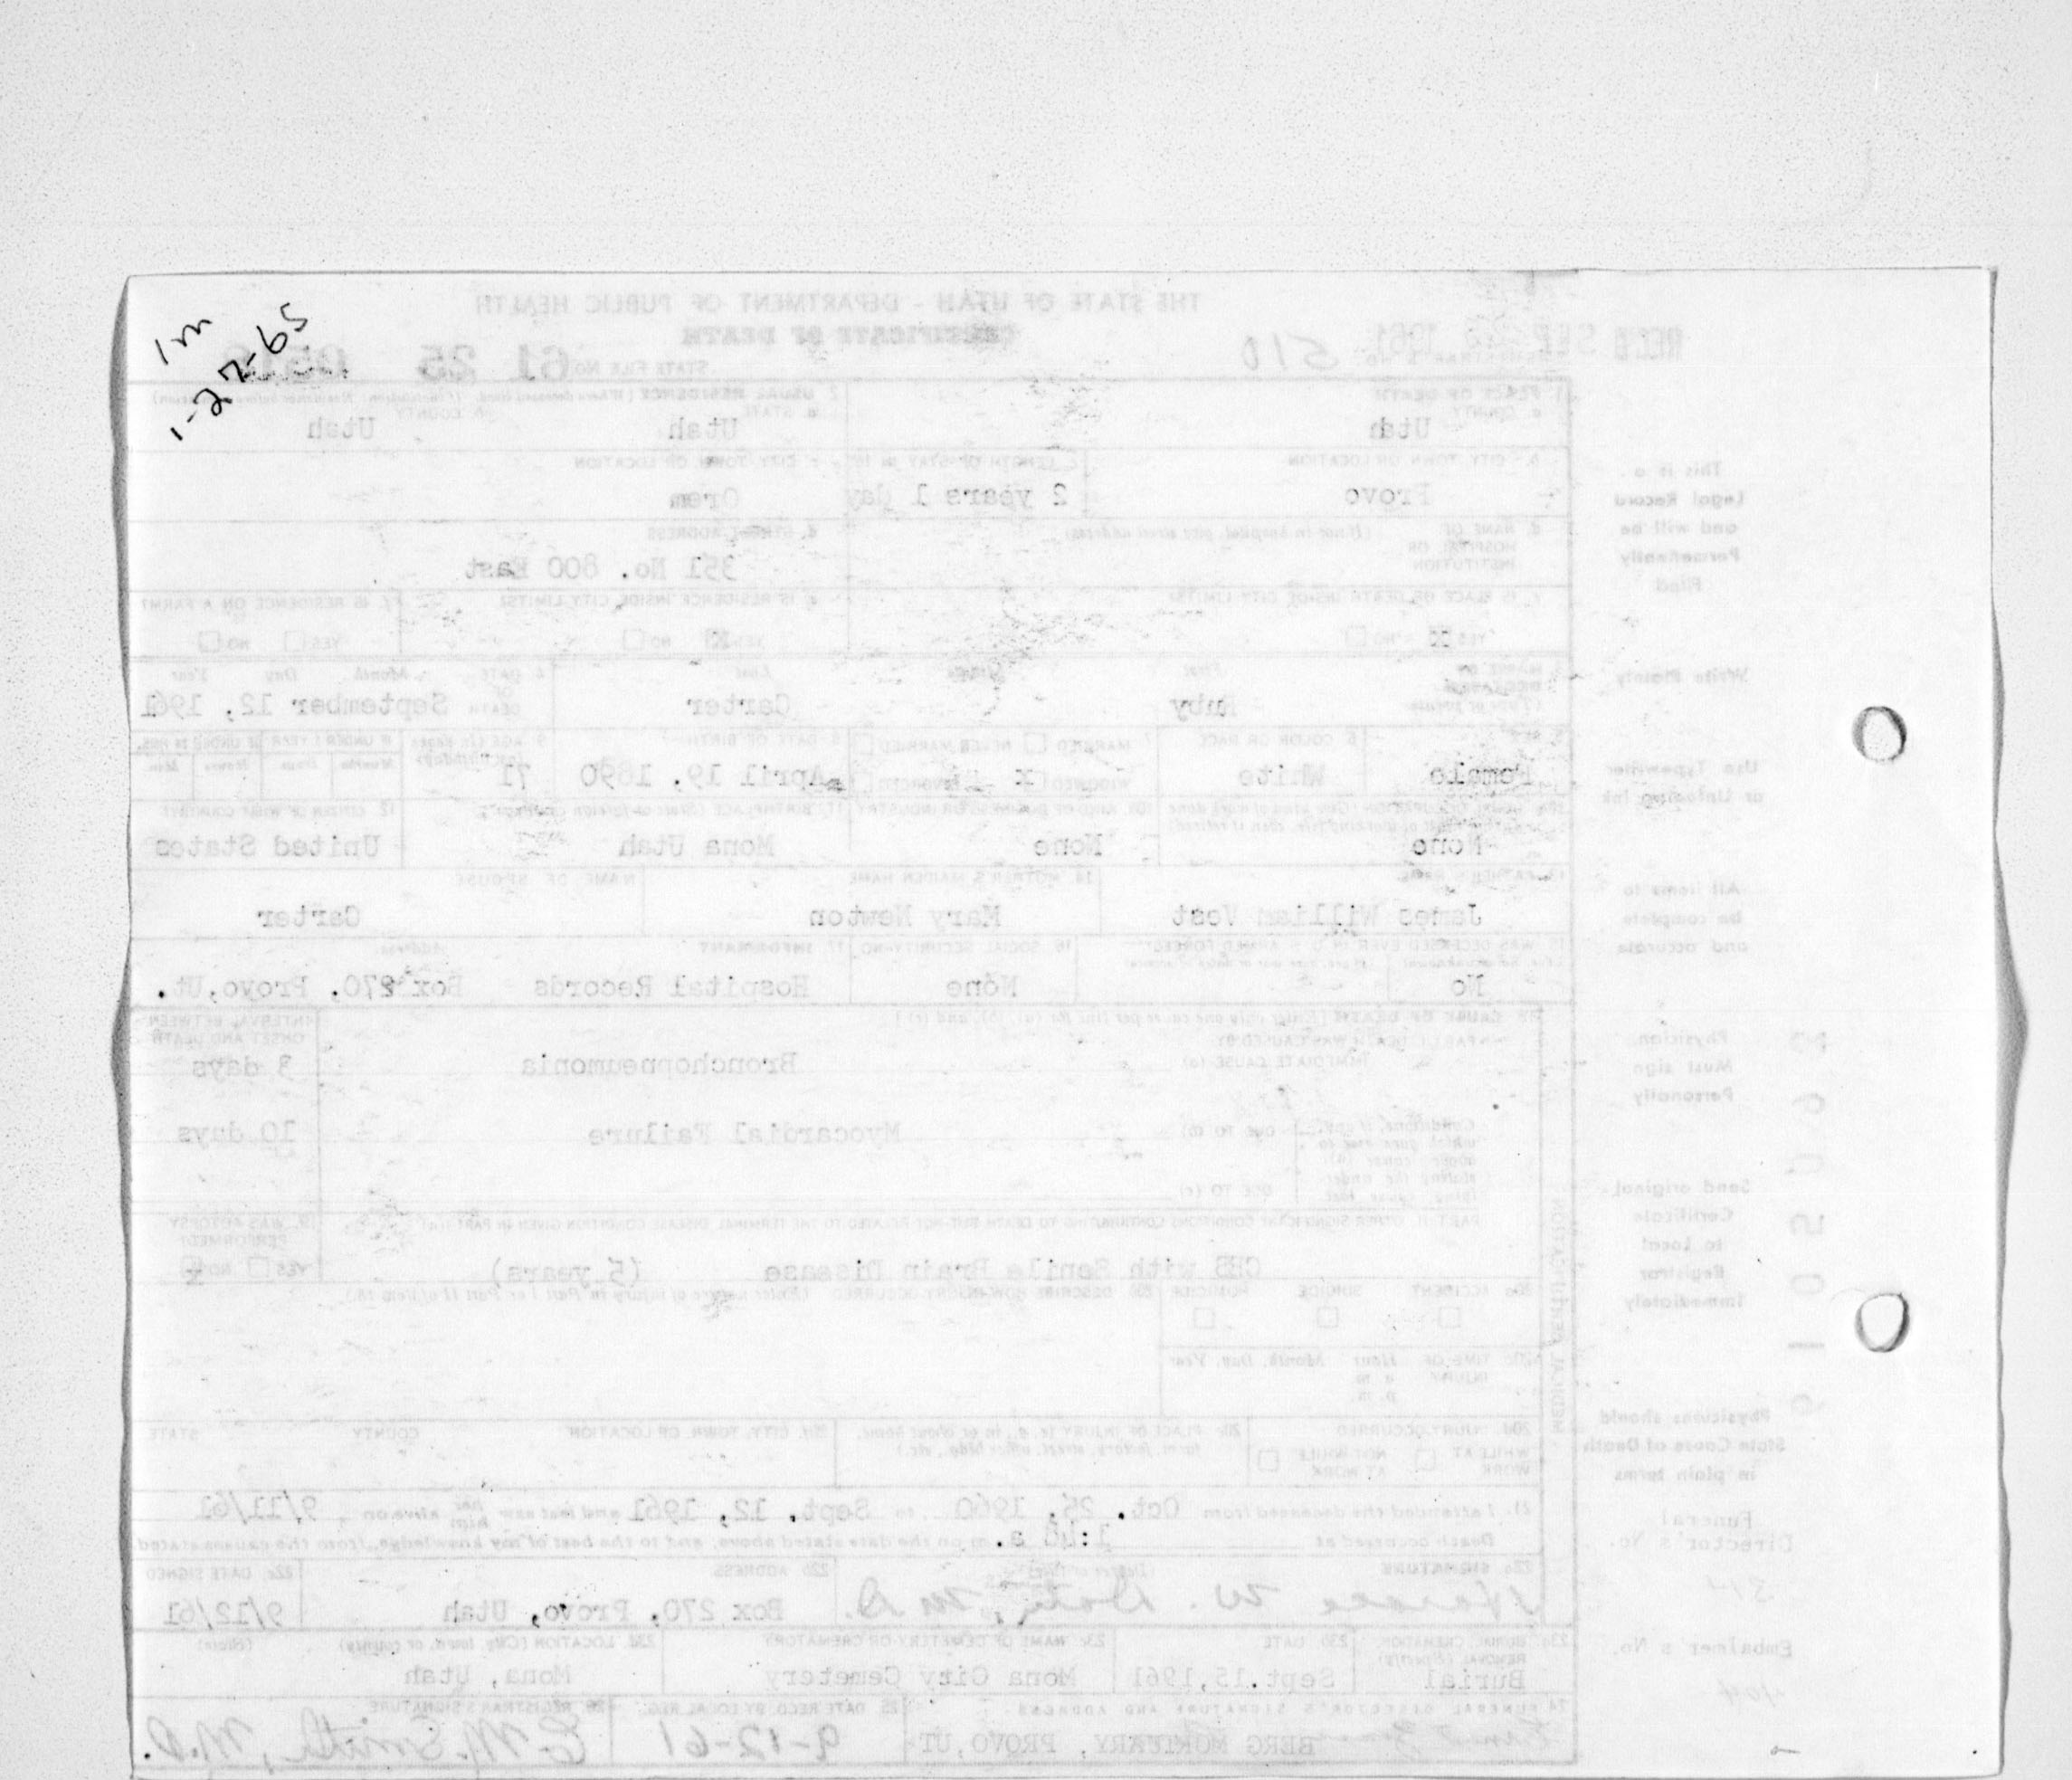 1m
1-27-65
THE STATE OF UTAH - DEPARTMENT OF PUBLIC HEALTH
CERTIFICATE OF DEATH
REC'D SEP 1961
510
STATE FILE No. 61 25
1. PLACE OF DEATH
a. COUNTY
Utah
2. USUAL RESIDENCE
a. STATE
Utah
b. COUNTY
Utah
b. CITY TOWN OR LOCATION
Provo
c. LENGTH OF STAY IN 1b
2 years 1 day
c. CITY TOWN OR LOCATION
Orem
d. NAME OF HOSPITAL OR INSTITUTION
(If not in hospital, give street address)
d. STREET ADDRESS
351 No. 800 East
e. IS PLACE OF DEATH INSIDE CITY LIMITS?
YES NO
e. IS RESIDENCE INSIDE CITY LIMITS?
YES NO
f. IS RESIDENCE ON A FARM?
YES NO
First
Ruby
Middle
Last
Carter
4. DATE OF DEATH
Month Day Year
September 12, 1961
Female
6. COLOR OR RACE
White
7. MARRIED NEVER MARRIED
WIDOWED x DIVORCED
8. DATE OF BIRTH
April 19, 1890
71
IF UNDER 1 YEAR
None
10b. KIND OF BUSINESS OR INDUSTRY
None
11. BIRTHPLACE (State or foreign country)
Mona Utah
12. CITIZEN OF WHAT COUNTRY?
United States
13. FATHER'S NAME
James William Vest
14. MOTHER'S MAIDEN NAME
Mary Newton
NAME OF SPOUSE
Carter
15. WAS DECEASED EVER IN U. S. ARMED FORCES?
No
16. SOCIAL SECURITY NO.
None
17. INFORMANT
Address
Hospital Records Box 270, Provo, Ut.
18. CAUSE OF DEATH [Enter only one cause per line for (a), (b), and (c).]
INTERVAL BETWEEN ONSET AND DEATH
PART I. DEATH WAS CAUSED BY
IMMEDIATE CAUSE (a)
Bronchopneumonia
3 days
Conditions, if any, which gave rise to above cause (a), stating the underlying cause last
DUE TO (b)
Myocardial Failure
10 days
DUE TO (c)
PART II. OTHER SIGNIFICANT CONDITIONS CONTRIBUTING TO DEATH BUT NOT RELATED TO THE TERMINAL DISEASE CONDITION GIVEN IN PART I (a)
CBS with Senile Brain Disease (5 years)
19. WAS AUTOPSY PERFORMED?
YES NO x
20a. ACCIDENT SUICIDE HOMICIDE
20b. DESCRIBE HOW INJURY OCCURRED (Enter nature of injury in Part I or Part II of item 18.)
20c. TIME OF INJURY
Hour Month, Day, Year
a. m.
p. m.
20d. INJURY OCCURRED
WHILE AT WORK NOT WHILE AT WORK
20e. PLACE OF INJURY (e. g., in or about home, farm, factory, street, office bldg., etc.)
20f. CITY, TOWN, OR LOCATION COUNTY STATE
21. I attended the deceased from Oct. 25, 1960 to Sept. 12, 1961 and last saw her him alive on 9/11/61
Death occured at 1:40 a. m on the date stated above, and to the best of my knowledge, from the causes stated
22a. SIGNATURE
Horace W. Doty, M.D.
22b. ADDRESS
Box 270, Provo, Utah
22c. DATE SIGNED
9/12/61
23a. BURIAL, CREMATION, REMOVAL (Specify)
Burial
23b. DATE
Sept. 15, 1961
23c. NAME OF CEMETERY OR CREMATORY
Mona City Cemetery
23d. LOCATION (City, town, or county) (State)
Mona, Utah
24. FUNERAL DIRECTOR'S SIGNATURE AND ADDRESS
BERG MORTUARY, PROVO, UT
25. DATE RECD. BY LOCAL REG.
9-12-61
26. REGISTRAR'S SIGNATURE
C. M. Smith, M.D.
MEDICAL CERTIFICATION
This is a
Legal Record
and will be
Permanently
Filed
Write Plainly
Use Typewriter
or Unfading Ink
All items to
be complete
and accurate
Physician
Must sign
Personally
Send original
Certificate
to Local
Registrar
Immediately
Physicians should
State Cause of Death
in plain terms
Funeral
Director's No.
Embalmer's No.